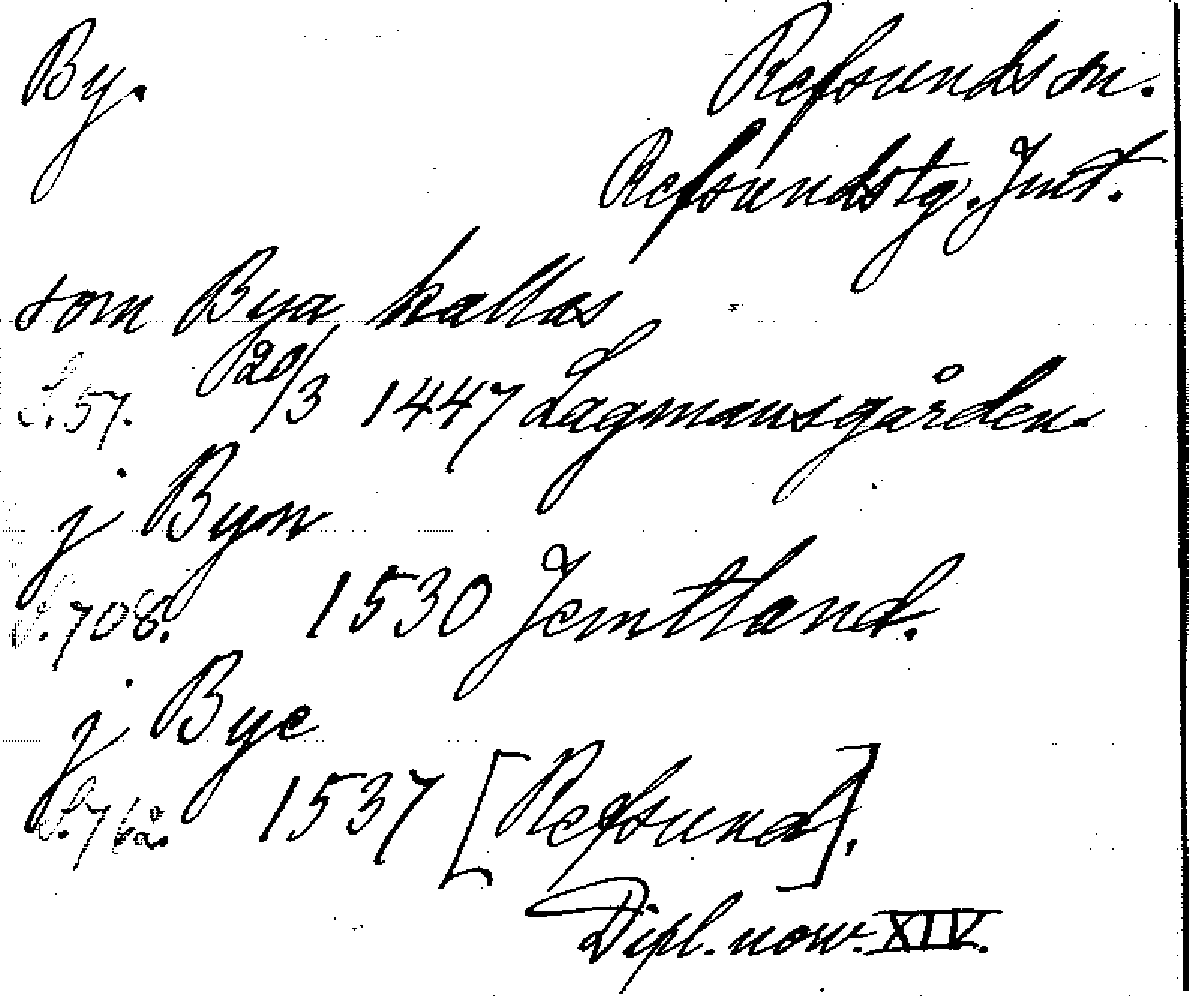 By. Refsunds sn.
Refsundstg. Jmt.
som Bya kallas
S. 57. 20/3 1447 Lagmansgården.
j Byn
S. 708. 1530 Jemtland.
j Bye
S. 762. 1537 [Refsund].
Dipl. norv. XIV.